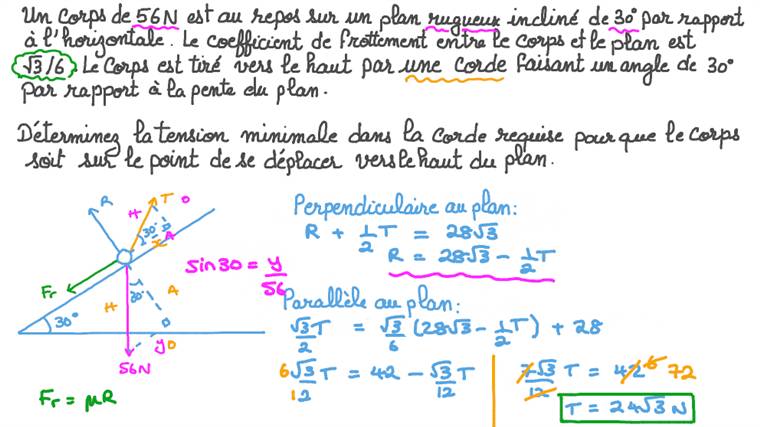 Un corps de 56N est au repos sur un plan rugueux incliné de 30° par rapport
à l'horizontale. Le coefficient de frottement entre le corps et le plan est
√3/6. Le corps est tiré vers le haut par une corde faisant un angle de 30°
par rapport à la pente du plan.
Déterminez la tension minimale dans la corde requise pour que le corps
soit sur le point de se déplacer vers le haut du plan.
R
H
T
O
30°
A
x
Fr
30°
H
30°
A
y
O
56N
Fr = μR
sin30 = y/56
Perpendiculaire au plan:
R + 1/2 T = 28√3
R = 28√3 - 1/2 T
Parallèle au plan:
√3/2 T = √3/6 (28√3 - 1/2 T) + 28
6√3/12 T = 42 - √3/12 T
7√3/12 T = 42 6 72
T = 24√3 N